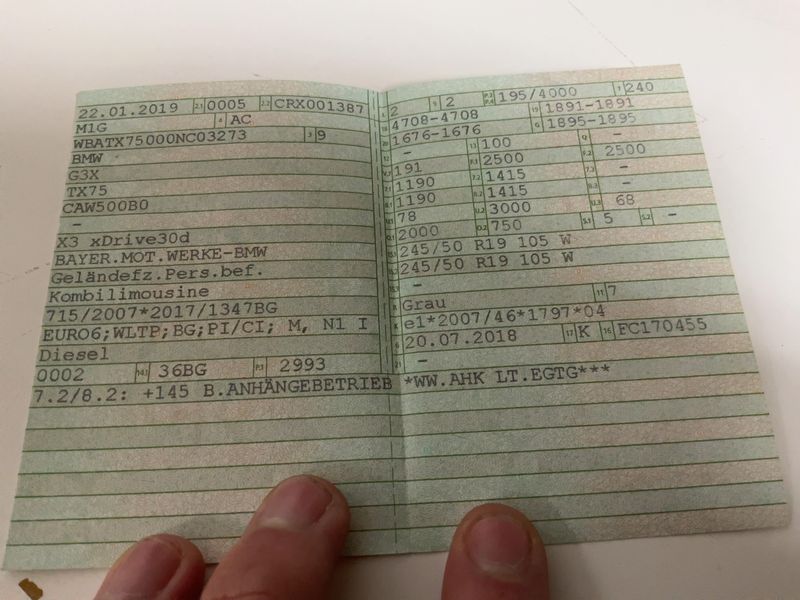 22.01.2019 2.1 0005 2.2 CRX001387
M1G 4 AC
WBATX75000NC03273 3 9
BMW
G3X
TX75
CAW500B0
-
X3 xDrive30d
BAYER.MOT.WERKE-BMW
Geländefz.Pers.bef.
Kombilimousine
715/2007*2017/1347BG
EURO6;WLTP;BG;PI/CI; M, N1 I
Diesel
0002 14.1 36BG P.1 2993
7.2/8.2: +145 B.ANHÄNGEBETRIEB *WW.AHK LT.EGTG***
L 2 9 2 P.2 P.4 195/4000 T 240
18 4708-4708 19 1891-1891
20 1676-1676 G 1895-1895
- 13 100 Q -
V.7 191 F.1 2500 F.2 2500
7.1 1190 7.2 1415 7.3 -
8.1 1190 8.2 1415 8.3 -
U.1 78 U.2 3000 U.3 68
O.1 2000 O.2 750 S.1 5 S.2 -
15.1 245/50 R19 105 W
15.2 245/50 R19 105 W
15.3 -
R Grau 11 7
K e1*2007/46*1797*04
6 20.07.2018 17 K 16 FC170455
21 -